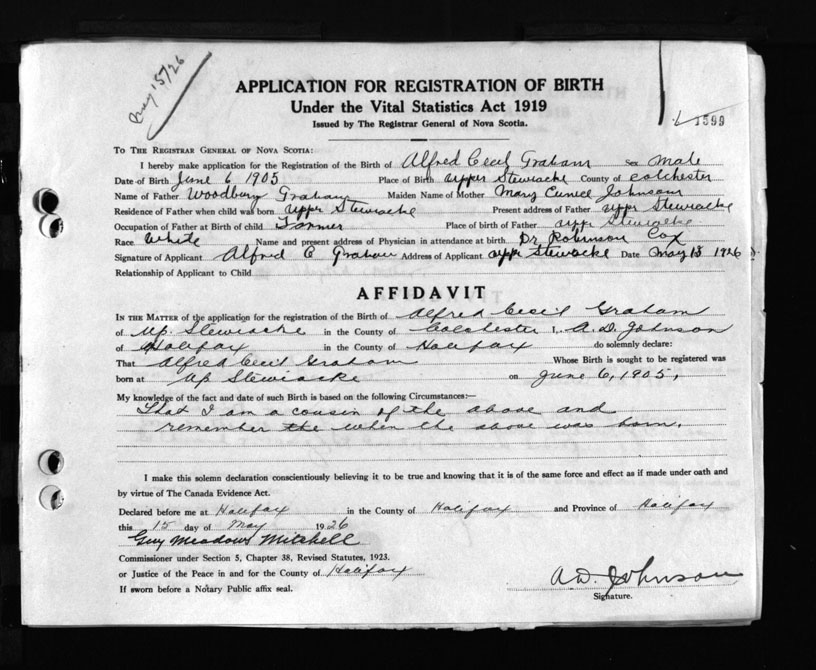 May 15/26
APPLICATION FOR REGISTRATION OF BIRTH
Under the Vital Statistics Act 1919
Issued by The Registrar General of Nova Scotia.
1599
TO THE REGISTRAR GENERAL OF NOVA SCOTIA:
I hereby make application for the Registration of the Birth of Alfred Cecil Graham Sex Male
Date of Birth June 6 1905 Place of Birth Upper Stewiacke County of Colchester
Name of Father Woodbury Graham Maiden Name of Mother Mary Johnson
Residence of Father when child was born Upper Stewiacke Present address of Father Upper Stewiacke
Occupation of Father at Birth of child Farmer Place of birth of Father Upper Stewiacke
Race White Name and present address of Physician in attendance at birth Dr Robinson Cox
Signature of Applicant Alfred C Graham Address of Applicant Upper Stewiacke Date May 1926
Relationship of Applicant to Child
AFFIDAVIT
IN THE MATTER of the application for the registration of the Birth of Alfred Cecil Graham
of Up. Stewiacke in the County of Colchester I, A. D. Johnson
of Halifax in the County of Halifax do solemnly declare:
That Alfred Cecil Graham Whose Birth is sought to be registered was
born at Up Stewiacke on June 6, 1905.
My knowledge of the fact and date of such Birth is based on the following Circumstances:—
That I am a cousin of the above and
remember the when the above was born.
I make this solemn declaration conscientiously believing it to be true and knowing that it is of the same force and effect as if made under oath and
by virtue of The Canada Evidence Act.
Declared before me at Halifax in the County of Halifax and Province of Halifax
this 15 day of May 1926
Guy Meadows Mitchell
Commissioner under Section 5, Chapter 38, Revised Statutes, 1923.
or Justice of the Peace in and for the County of Halifax
If sworn before a Notary Public affix seal.
A. D. Johnson
Signature.